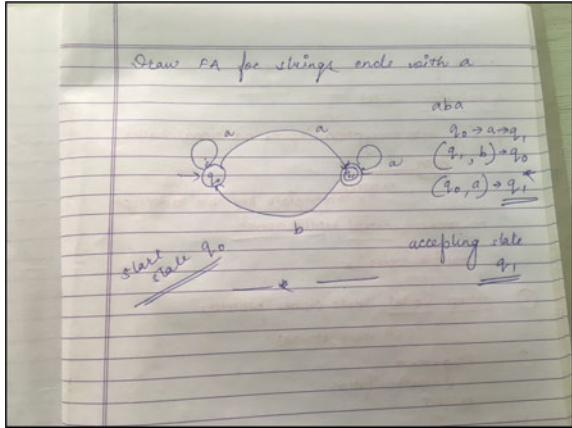 Draw FA for strings ends with a
aba
q0 → a → q1
(q1, b) → q0
(q0, a) → q1
a
a
a
q0
q1
b
start state q0
accepting state
q1